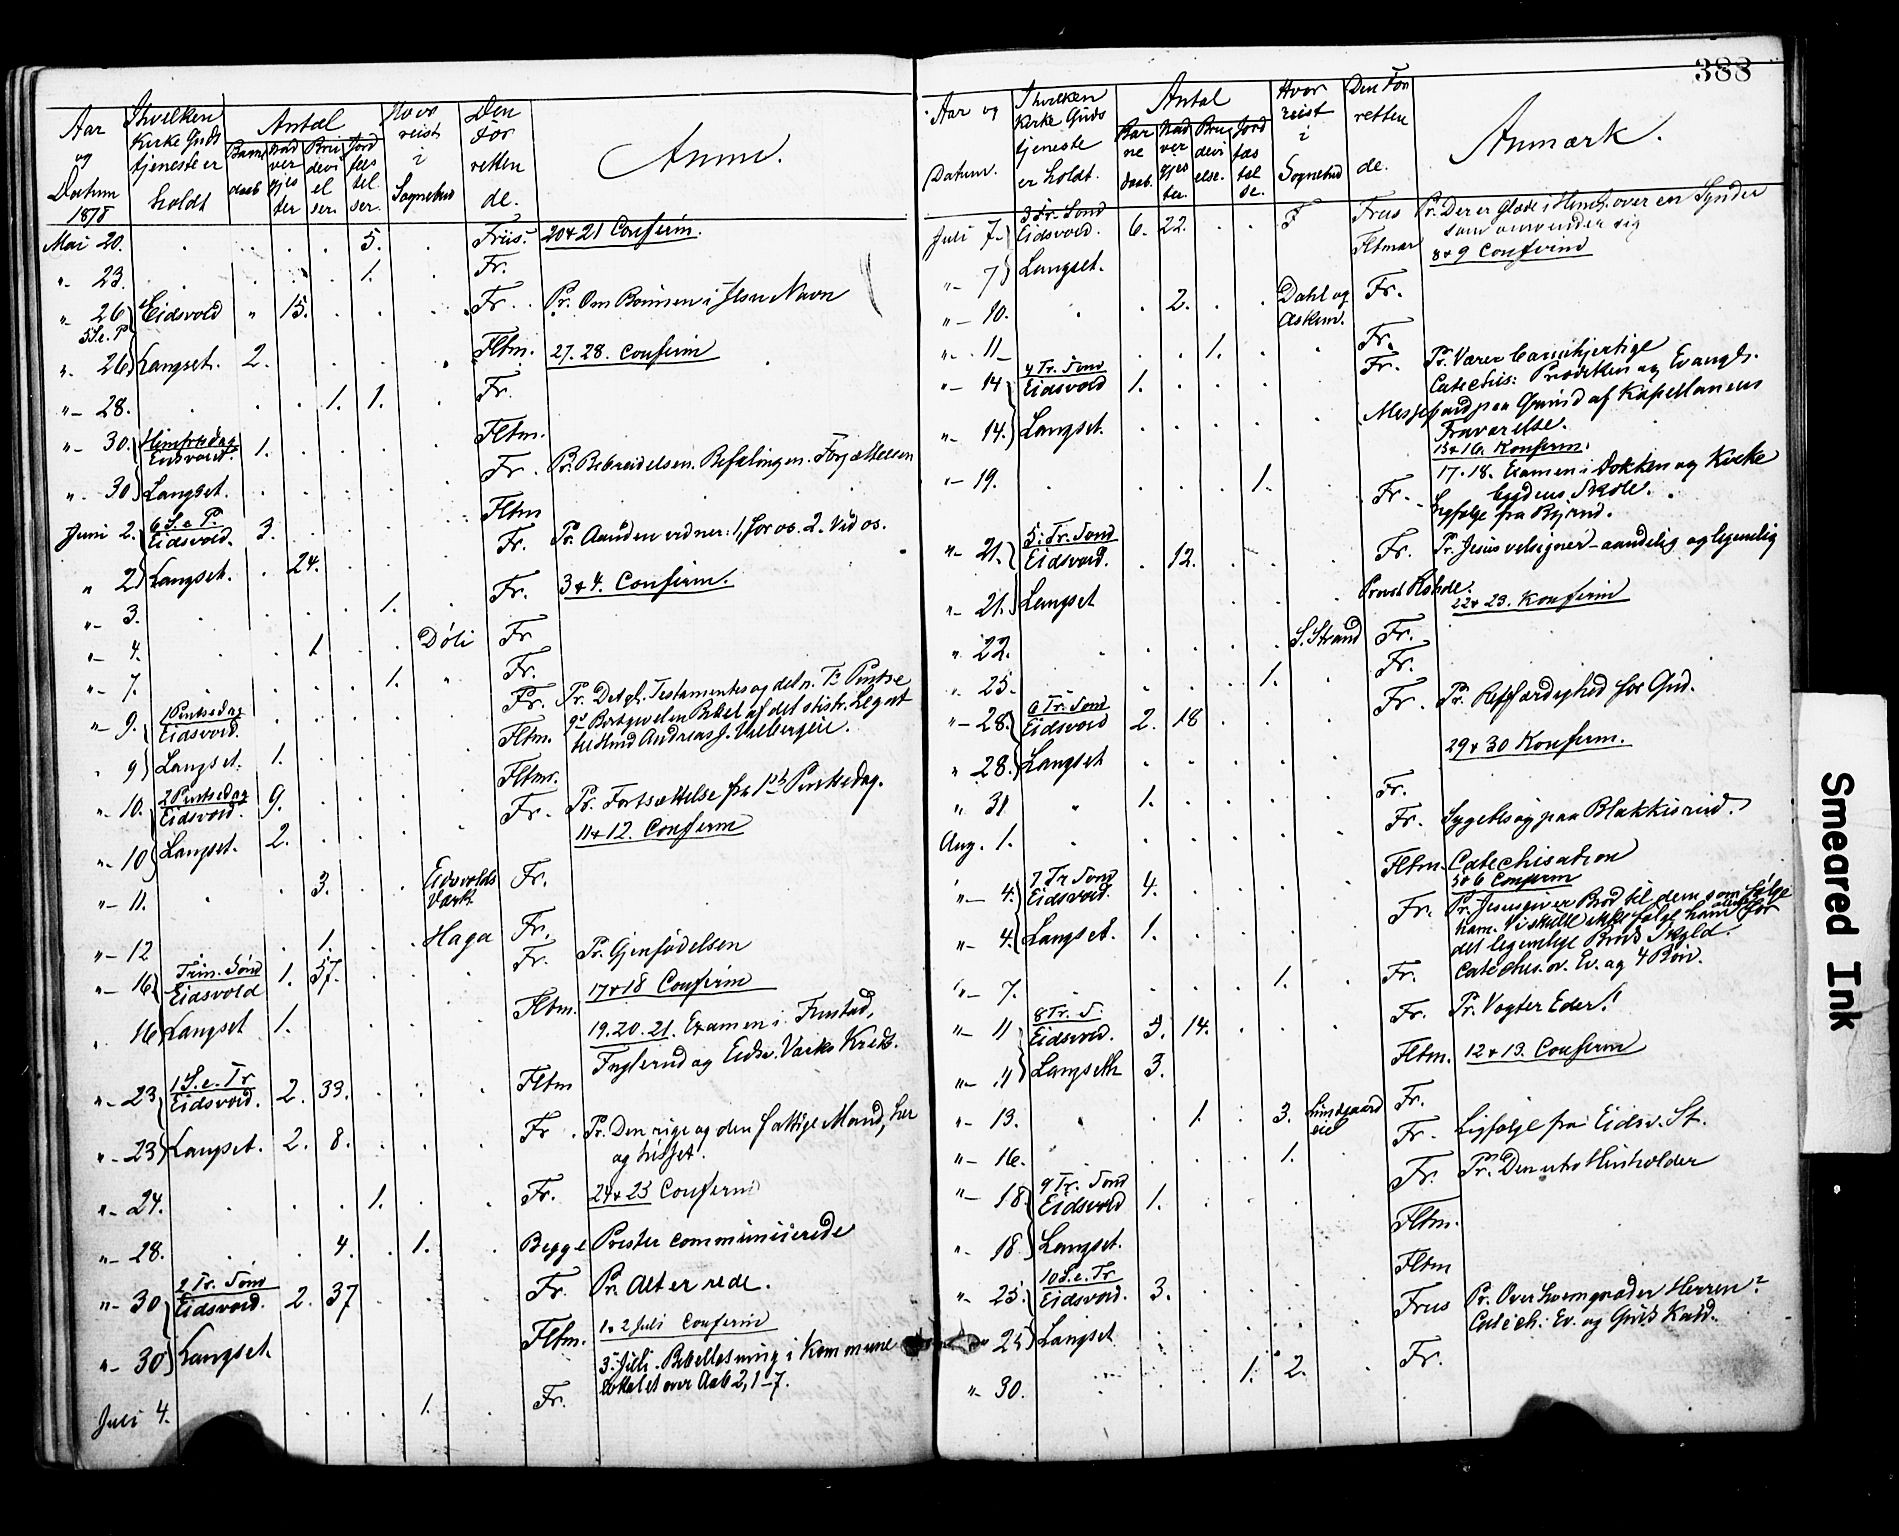 Aar
og
Datum
1878
Ihvilken
Kirke Guds
tjeneste er
holdt
Antal
Barne
daab
Nad
ver
gjes
ter
Bru
devi
el
ser.
Jord
fæs
tel
ser.
Hvor
reist
i
Sognebud
Den
For
retten
de.
Anm.
Mai 20. 5. Friis. 20 & 21 Confirm.
"- 23. 1. Fr.
"- 26 Eidsvold " 15. Fr. Pr. Om Bønnen i Jesu Navn
5 S. e. P.
"- 26 Langset. 2. Fltm. 27. 28. Confirm
"- 28. 1. 1. Fr.
"- 30. Himfrtsdag
Eidsvold. 1. Fltm.
Fr. Pr. Bebreidelsen. Befalingen. Forjættelsen
"- 30 Langset. Fltm
Juni 2. 6 S. e. P.
Eidsvold. 3. Fr. Pr. Aanden vidner: 1, for os. 2. Ved os.
" 2 Langset. 24. Fr. 3 & 4. Confirm.
"- 3. 1.
"- 4. 1 Døli Fr
"- 7. 1. Fr.
"- 9. 1 Pintsedag
Eidsvold. Fr. Pr. Det gl. Testamentes og det n. T. Pintse
Bortgivelsen Bibel af det Legat
til Andreas J.
" 9 Langset. 1. Fltm.
"- 10. 2 Pintsedag
Eidsvold. 9. Fr. Pr. Fortsættelse fra 1ste Pintsedag.
11 & 12. Confirm
"- 10 Langset. 2. Fltm.
"- 11. 3. Eidsvolds
Værk. Fr.
"- 12 1. Haga Fr.
"- 16 Trin. Sønd
Eidsvold 1. 57. Fr. Pr. Gjenfødelsen
17 & 18 Confirm
" 16 Langset 1. Fltm. 19. 20. 21. Examen i
og Eidsv. Værks Kreds.
"- 23 1 S. e. Tr
Eidsvold. 2. 33. Fltm
"- 23 Langset. 2. 8. Fr. Pr. Den rige og den fattige Mand, her
og hisset.
"- 24. 1. Fr. 24 & 25 Confirm
"- 28. 4. 1. Begge Prester communicerede
"- 30 2 Tr. Sønd
Eidsvold. 2. 37 Fr. Pr. Alt er rede.
"- 30 Langset Fltm. 1 & 2 Juli Confirm
3. Juli. Bibellæsning i Kommune
lokalet over Aab 2, 1-7.
Juli 4. 1. Fr.
388
Aar og
Datum.
Ihvilken
Kirke Guds
tjeneste
er holdt.
Antal
Bar
ne
daab.
Nad
ver
gjes
ter.
Bru
devi
else.
Jord
fæs
tel
se.
Hvor
reist
i
Sognebud
Den For
retten
de.
Anmærk.
Juli 7. 3 Tr. Sønd
Eidsvold. 6. 22. F Friis Pr. Der er Glæde i Himl. over en Synder
som omvender sig
"- 7 Langset. Fltmar 8 & 9 Confirm
"- 10. 2. Dahl og
Askim. Fr.
"- 11 1. Fr.
"- 14 4 Tr. Sønd
Eidsvold 1. Fr. Pr. Værer barmhjertige
Catechis: Prædiken og Evangl.
"- 14. Langset. Messefald paa Grund af Kapellanens
Fraværelse.
15 & 16. Konfirm.
"- 19. 1. Fr. 17. 18. Examen i Dokken og Kirke
bygdens Skole.
Ligfølge fra
"- 21. 5. Tr. Sønd
Eidsvold. 12. Fr. Pr. Jesus velsigner - aandelig og legemlig
"- 21. Langset Provst 22 & 23. Konfirm
" 22. S. Strand Fr.
" 25. 1. Fr.
"- 28. 6 Tr. Sønd
Eidsvold 2. 18 Fr. Pr. Retfærdighed for Gud.
" 28. Langset 29 & 30 Konfirm.
" 31 " 1. Fr.
Aug. 1. Fr. Sygebesøg paa Blakkisrud.
"- 4. 7 Tr Sønd
Eidsvold. 4. Fltm. Catechisation
5 & 6 Confirm
"- 4. Langset. 1. Fr. Pr. Jesus giver Brød til dem som følge
ham. Vi skulle ikke følge ham for
det legemlige Brøds Skyld.
"- 7. 1. Fr. Catechis. ov. Ev. og 4 Bøn.
"- 11 8 Tr. S.
Eidsvold. 3. 14. Fr. Pr. Vogter Eder!
"- 11 Langseth 3. Fltm. 12 & 13. Confirm
"- 13. 1. 3. Fr.
"- 16. 1. Fr. Ligfølge fra Eidsv. St.
"- 18 9 Tr. Sønd
Eidsvold 1. Fr. Pr. Den utro Husholder
"- 18 Langset. Fltm.
"- 25. 10 S. e. Tr
Eidsvold. 3. Fltm
" 25 Langset Friis Pr. Over hvem græder Herren?
Catech: Ev. og Guds Kald.
"- 30. 1. 2. Fr.
Smeared Ink